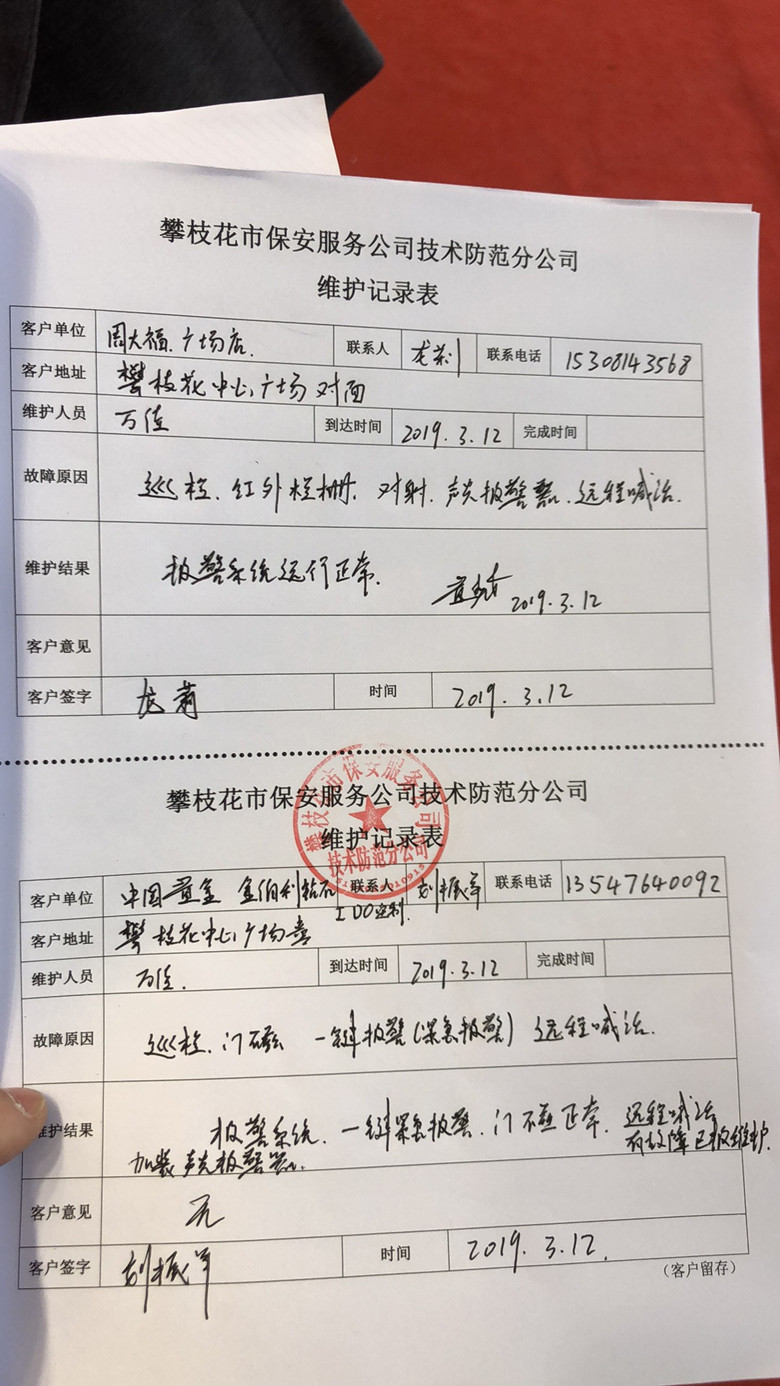 攀枝花市保安服务公司技术防范分公司
维护记录表
客户单位 周大福.广场店. 联系人 龙莉 联系电话 15308143568
客户地址 攀枝花中心广场对面
维护人员 万佳 到达时间 2019.3.12 完成时间
故障原因 巡检、红外栏栅、对射、声光报警器、远程喊话.
维护结果 报警系统运行正常. 2019.3.12
客户意见
客户签字 龙莉 时间 2019.3.12
攀枝花市保安服务公司技术防范分公司
维护记录表
攀枝花市保安服务公司
技术防范分公司
客户单位 中国黄金 金伯利钻石 联系人 刘振军 联系电话 13547640092
I DO定制.
客户地址 攀枝花中心广场
维护人员 万佳. 到达时间 2019.3.12 完成时间
故障原因 巡检、门磁 一键报警(紧急报警) 远程喊话.
维护结果 报警系统、一键紧急报警、门磁正常. 远程喊话
有故障已报维护.
加装声光报警器.
客户意见 无
客户签字 刘振军 时间 2019.3.12.
(客户留存)